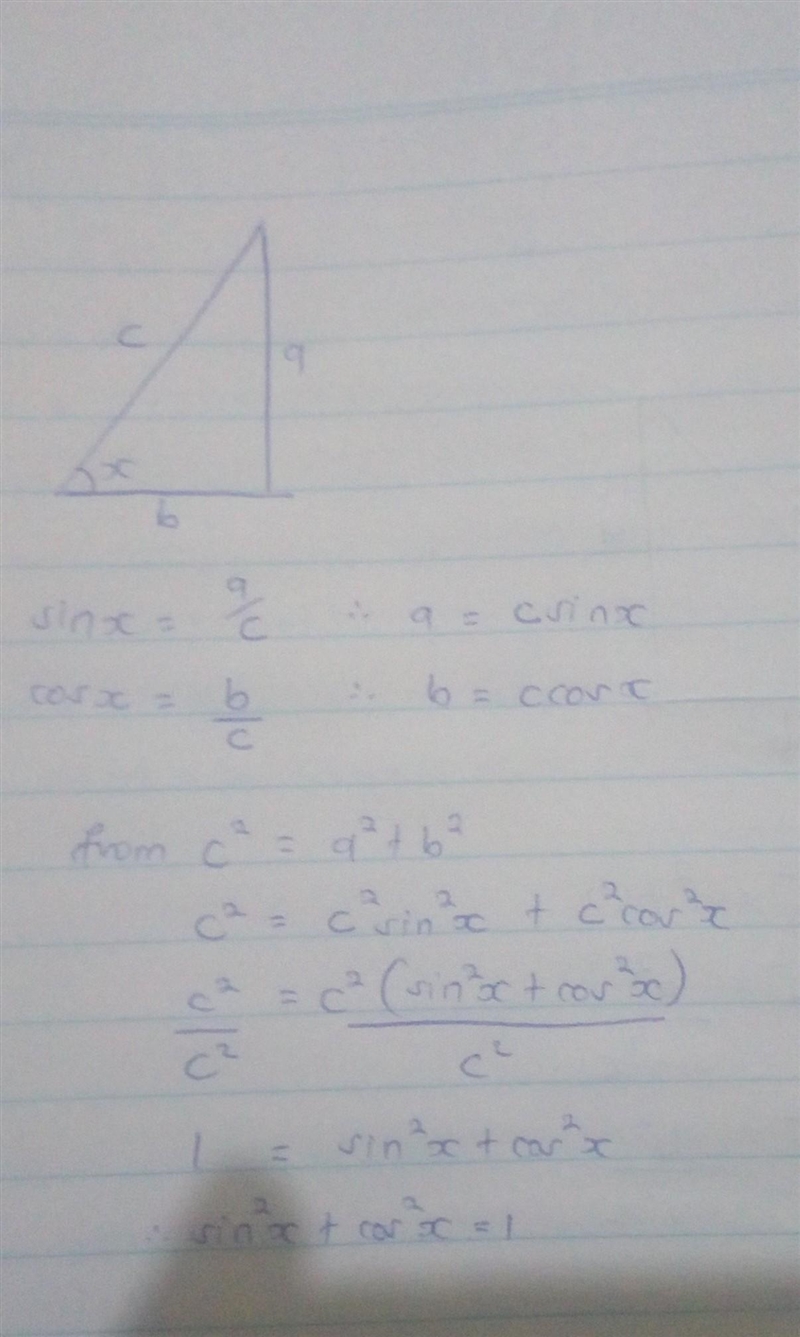 c
a
x
b
sinx = a/c ∴ a = csinx
cosx = b/c ∴ b = ccosx
from c² = a² + b²
c² = c²sin²x + c²cos²x
c²/c² = c²(sin²x + cos²x)/c²
1 = sin²x + cos²x
∴ sin²x + cos²x = 1